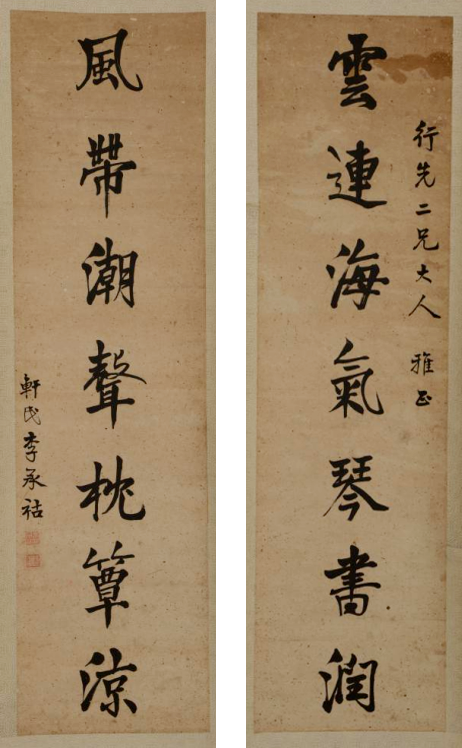 行先二兄大人 雅正
雲連海氣琴書潤
風帶潮聲枕簟涼
軒民李承祜